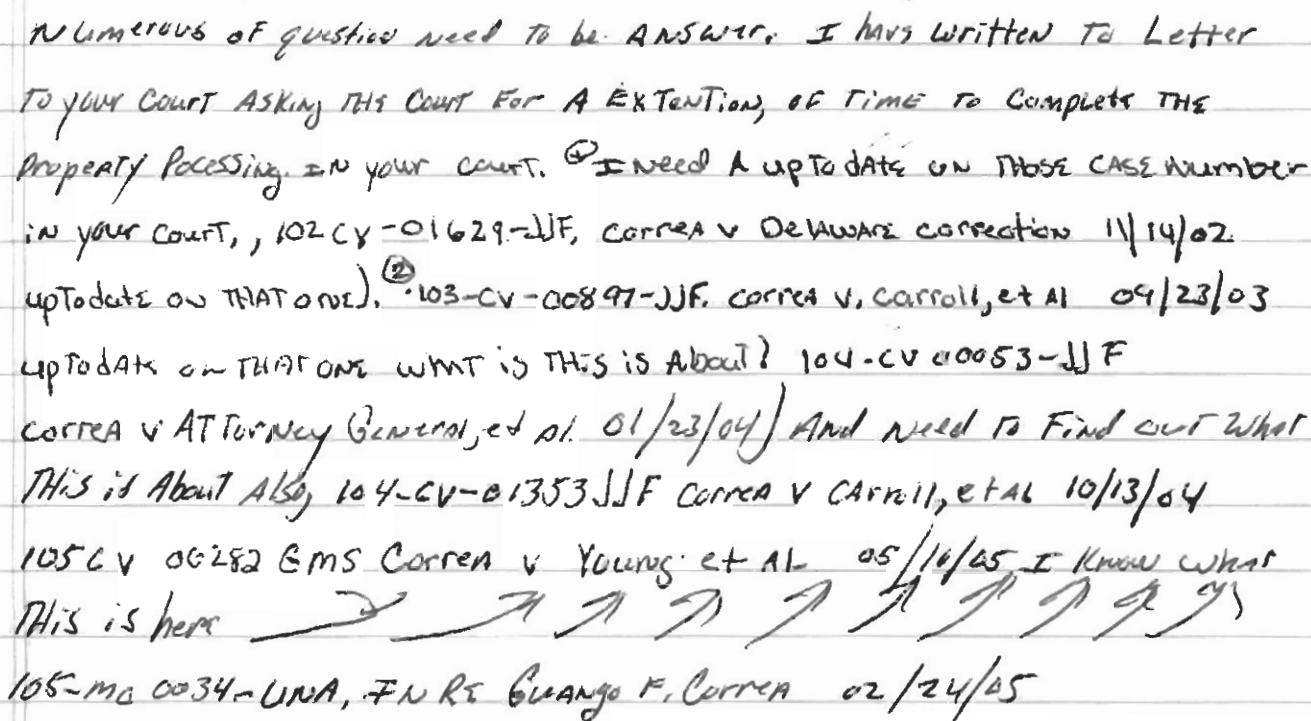 Numerous of question need to be Answer. I havs written To Letter
To your Court Asking THE Court For A ExTenTion, of Time To Complete THE
Property Pocessing. IN your court. ① I Need A upTo dAte on Those CASE Number
in your Court, , 102 CV-01629-JJF, CorreA v DelAware correction 11/14/02.
upTodate on THAT one). ② 103-CV-00897-JJF. Correa v. Carroll, et Al 09/23/03
upTodAte on THAT ONE WHAT is THis is About? 104-CV 00053-JJF
CorreA v ATTorney General, et Al. 01/23/04) And Need To Find out What
THis is About Also, 104-CV-01353JJF CorreA v CArroll, et AL 10/13/04
105 CV 00282 GMS CorreA v Young et AL 05/10/05 I Know what
THis is here
105-mc 0034-UNA, IN RE GuAngo F. CorreA 02/24/05